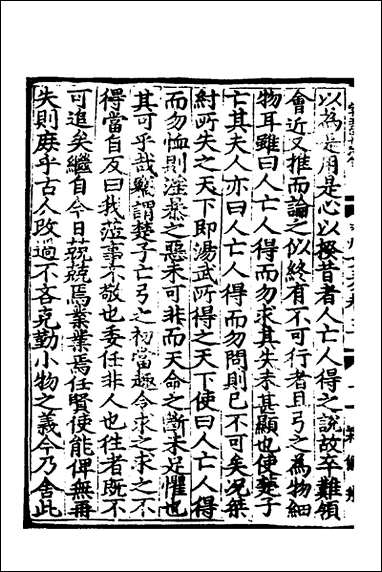 以為是用是心以極昔者人亡人得之說故卒難領
會近又推而論之似終有不可行者且弓之為物細
物耳雖曰人亡人得而勿求其失未甚顯也使楚子
亡其夫人亦曰人亡人得而勿問則已不可矣況桀
紂所失之天下即湯武所得之天下使曰人亡人得
而勿恤則淫暴之惡未可非而天命之斷未足懼也
其可乎哉鄙謂楚子亡弓之初當趣令求之求之不
得當自反曰我蒞事不敬也委任非人也往者既不
可追矣繼自今日兢兢焉業業焉任賢使能俾無再
失則庶乎古人改過不吝克勤小物之義今乃舍此